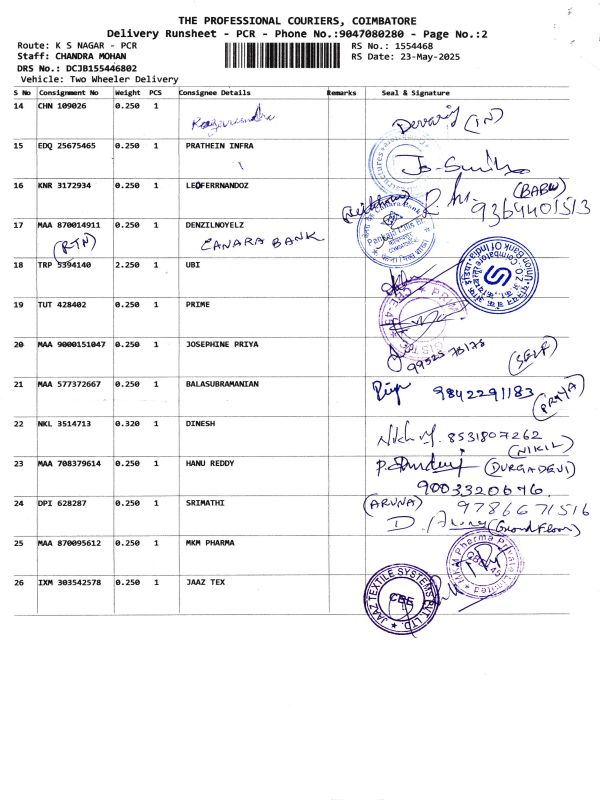 THE PROFESSIONAL COURIERS, COIMBATORE
Delivery Runsheet - PCR - Phone No.:9047080280 - Page No.:2
Route: K S NAGAR - PCR RS No.: 1554468
Staff: CHANDRA MOHAN RS Date: 23-May-2025
DRS No.: DCJB155446802
Vehicle: Two Wheeler Delivery
S No Consignment No Weight PCS Consignee Details Remarks Seal & Signature
14 CHN 109026 0.250 1
(IN)
15 EDQ 25675465 0.250 1 PRATHEIN INFRA
16 KNR 3172934 0.250 1 LEOFERRNANDOZ
(BABU)
9364401513
17 MAA 870014911 0.250 1 DENZILNOYELZ
(RTN) CANARA BANK
18 TRP 5394140 2.250 1 UBI
Union Bank Of India
19 TUT 428402 0.250 1 PRIME
20 MAA 9000151047 0.250 1 JOSEPHINE PRIYA
(SELF)
21 MAA 577372667 0.250 1 BALASUBRAMANIAN
9842291183 (PRIYA)
22 NKL 3514713 0.320 1 DINESH
8531807262
(NIKIL)
23 MAA 708379614 0.250 1 HANU REDDY
(DURGADEVI)
9003320676
24 DPI 628287 0.250 1 SRIMATHI
(ARUNA) 9786671516
(Ground Floor)
25 MAA 870095612 0.250 1 MKM PHARMA
MKM Pharma Private Limited
CBE-45
26 IXM 303542578 0.250 1 JAAZ TEX
JAAZ TEXTILE SYSTEMS PVT. LTD.
CBE